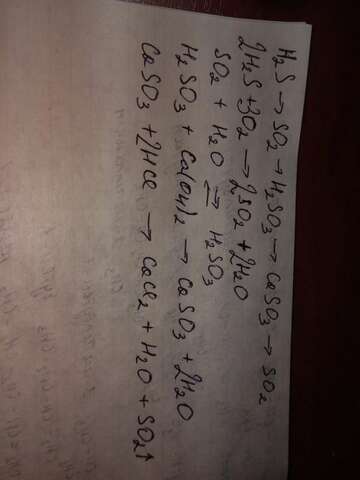 H₂S → SO₂ → H₂SO₃ → CaSO₃ → SO₂
2H₂S + 3O₂ → 2SO₂ + 2H₂O
SO₂ + H₂O ⇄ H₂SO₃
H₂SO₃ + Ca(OH)₂ → CaSO₃ + 2H₂O
CaSO₃ + 2HCl → CaCl₂ + H₂O + SO₂↑